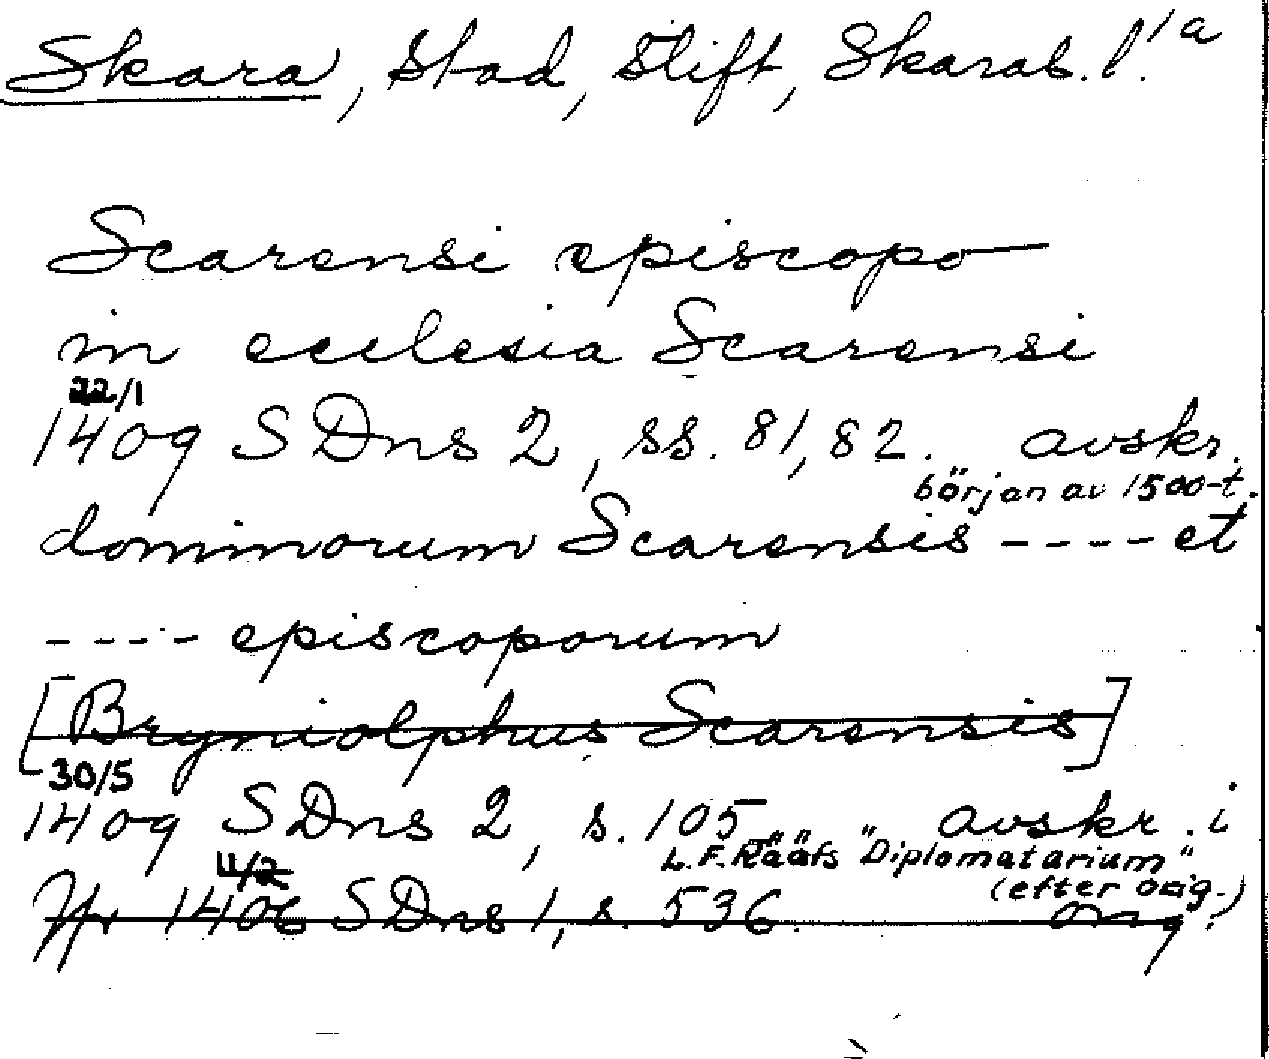 Skara, stad, stift, Skarab. l. 1a
Scarensi episcopo
in ecclesia Scarensi
22/1
1409 SDns 2, ss. 81, 82. avskr.
början av 1500-t.
dominorum Scarensis ---- et
---- episcoporum
[Bryniolphus Scarensis]
30/5
1409 SDns 2, s. 105 avskr. i
L. F. Rääfs "Diplomatarium"
(efter orig.)
11/2
Jfr 1406 SDns 1, s. 536. orig.